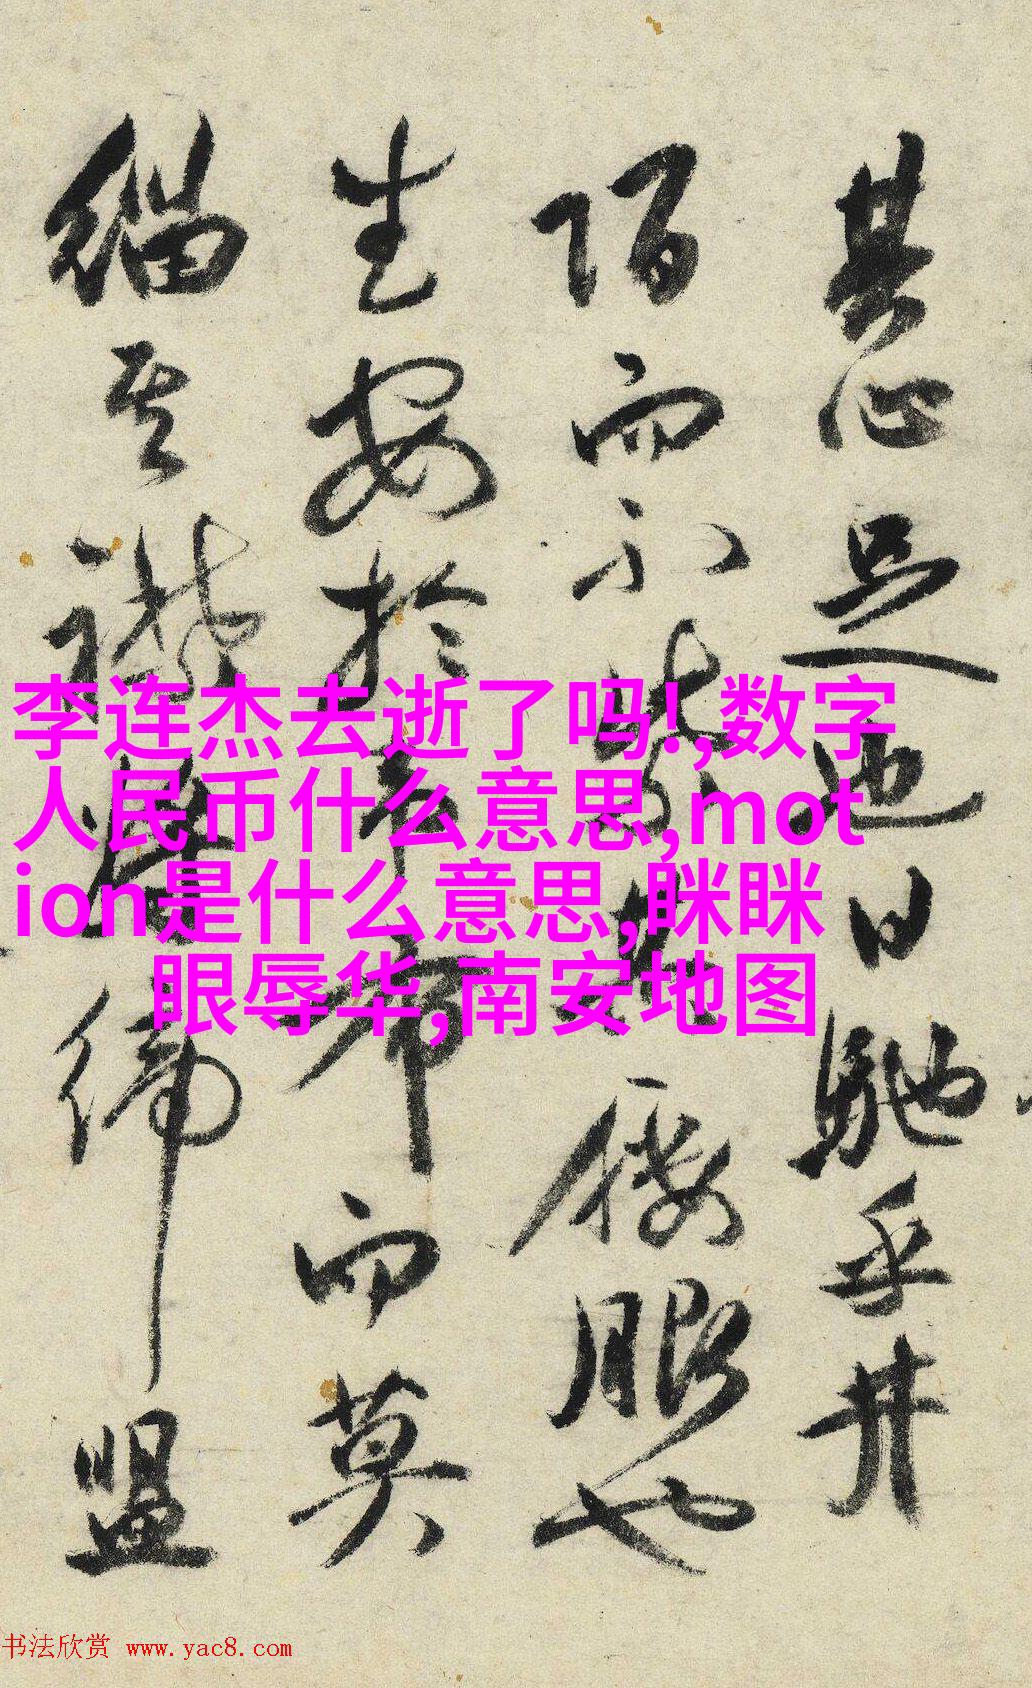 其心足也日馳乎井
陌而不
屐服也
生安於市而莫
緇其
締盟
李连杰去逝了吗!,数字
人民币什么意思,mot
ion是什么意思,眯眯
眼辱华,南安地图
书法欣赏 www.yac8.com